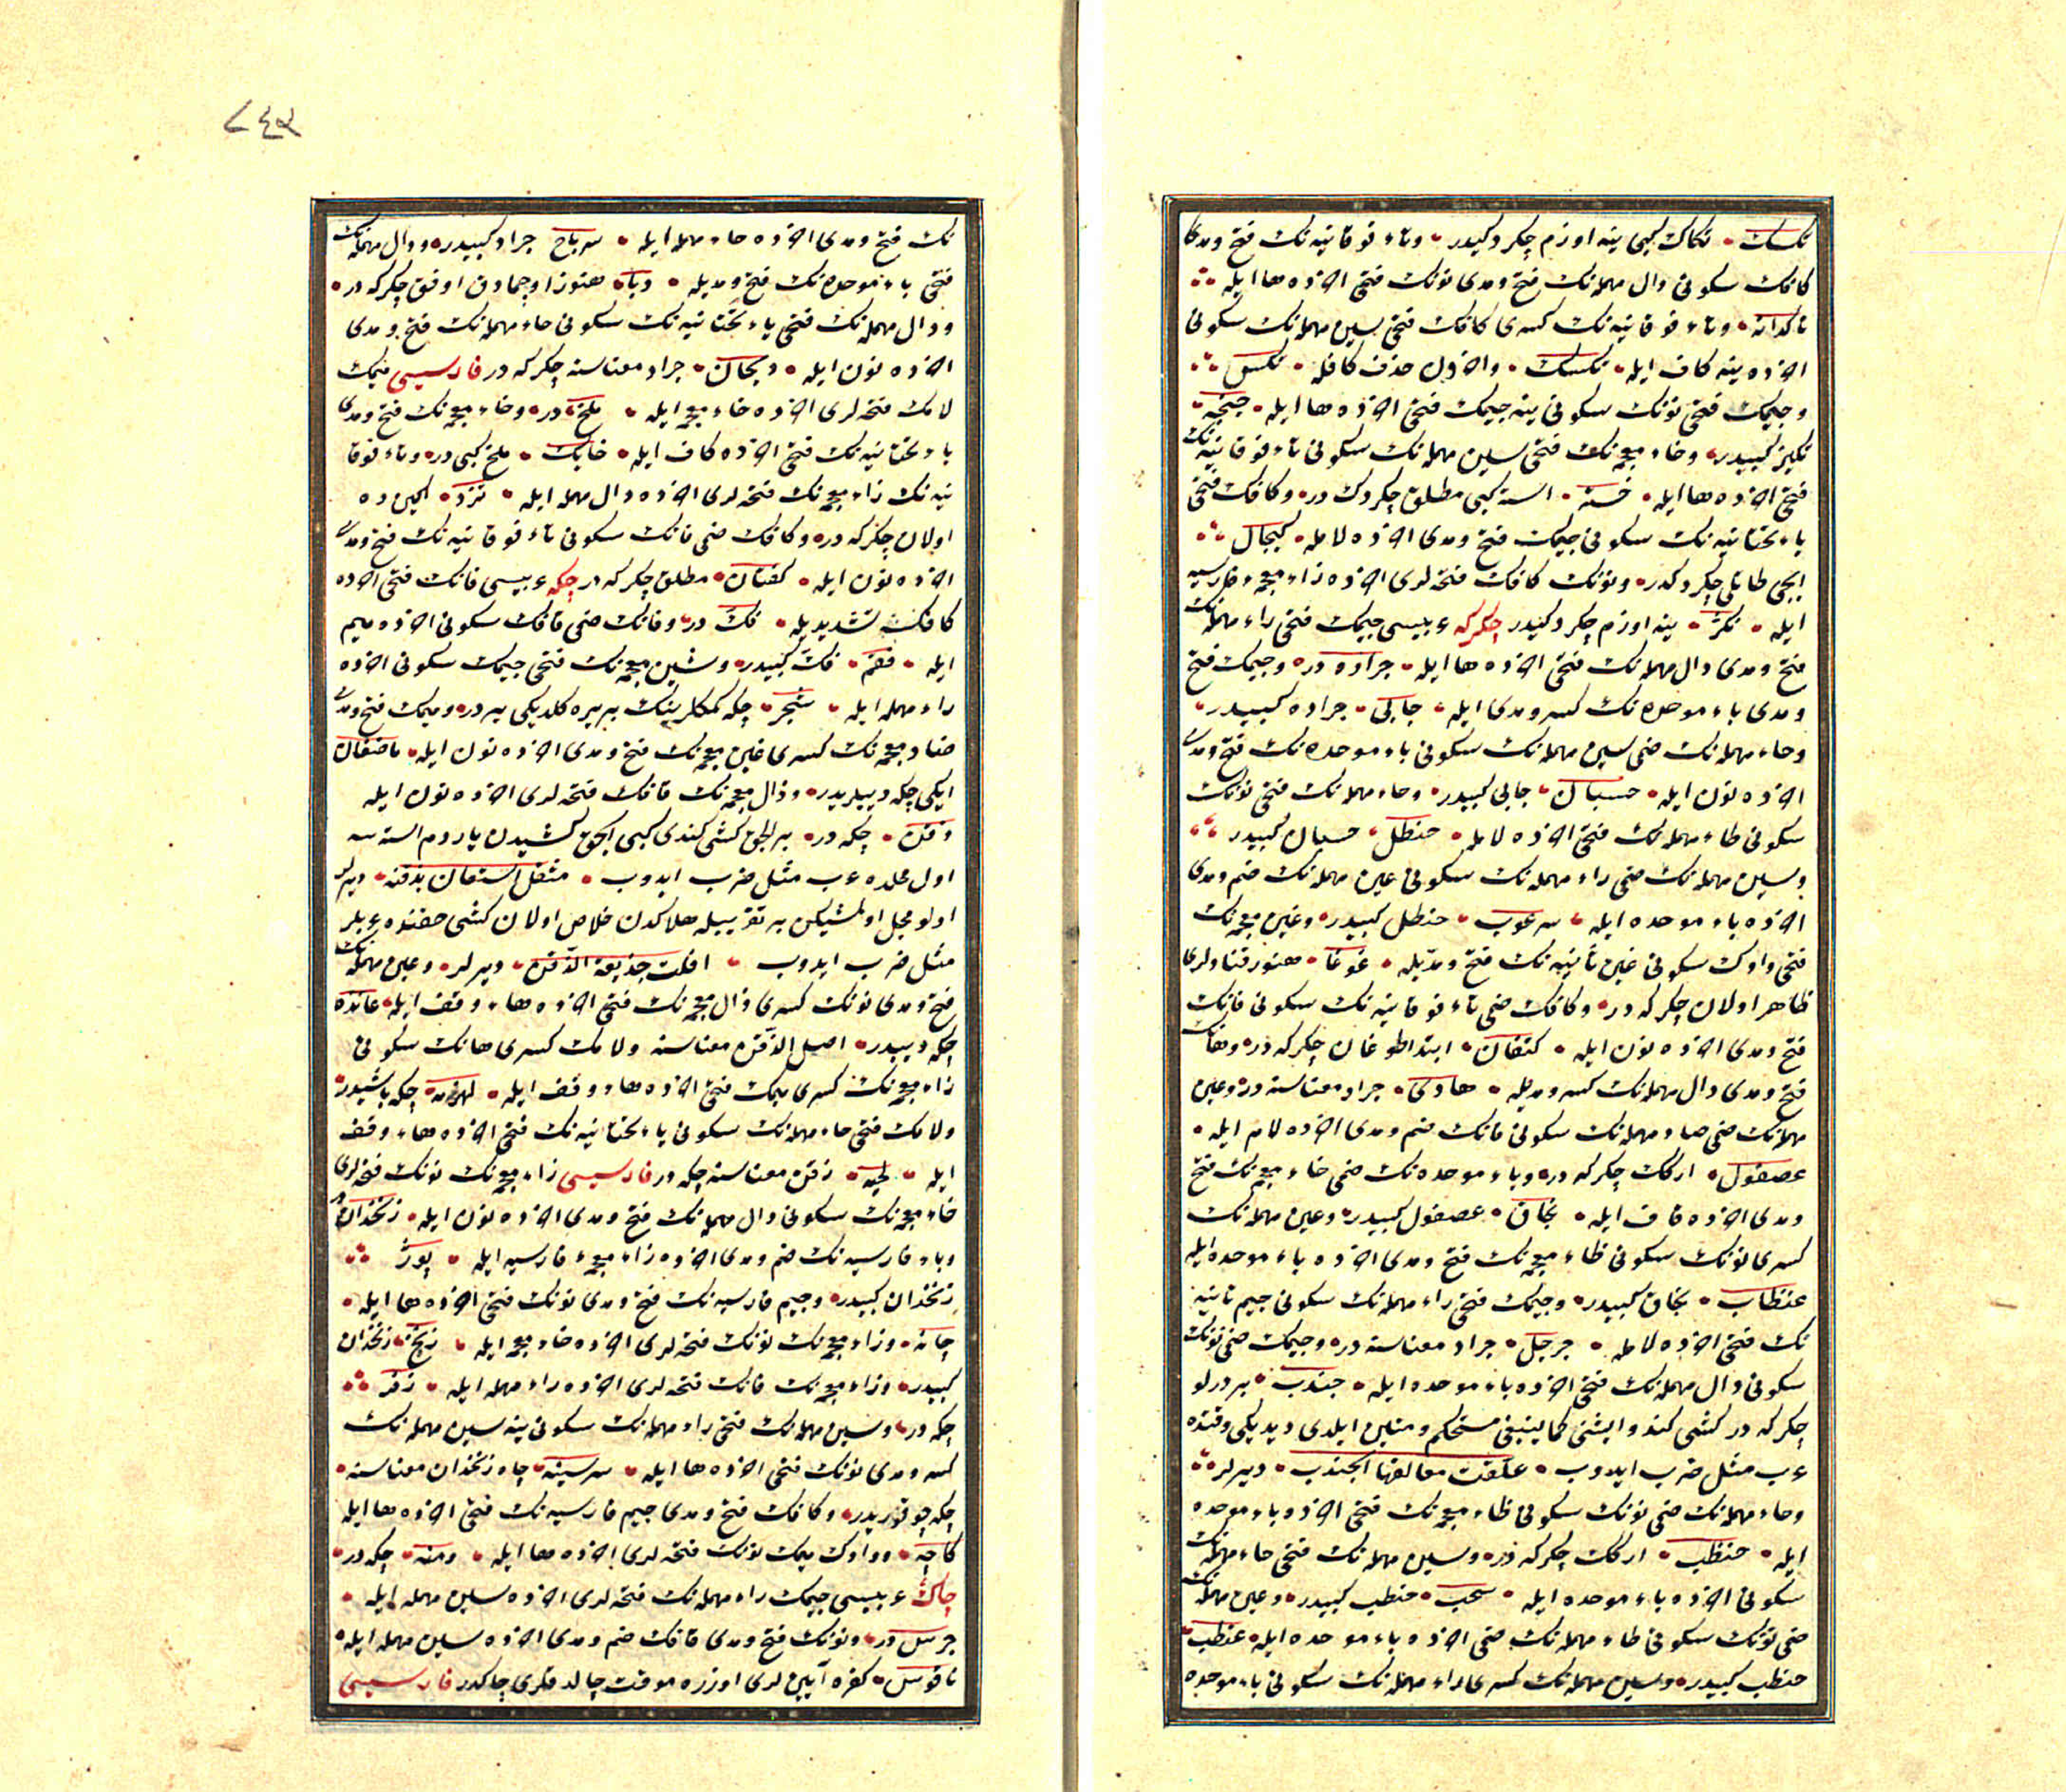 نكسك • نكاك كبى ينه اوزم چكردكيدر • وتاء فوقانيه نك فتح ومدى
كافك سكونى دال مهمله نك فتح ومدى نونك فتحى اخرده ها ايله
تاكدانه • وتاء فوقانيه نك كسرى كافك فتحى سين مهمله نك سكونى
اخرده ينه كاف ايله • تكسك • واخرون حذف كافله • تكس
وجيمك فتحى نونك سكونى ينه جيمك فتحى اخرده ها ايله • جنجه •
تكيز كبيدر • وخاء معجمه نك فتحى سين مهمله نك سكونى تاء فوقانيه نك
فتحى اخرده ها ايله • خسته • استه كبى مطلق چكردك در • وكافك فتحى
ياء تحتانيه نك سكونى جيمك فتح ومدى اخرده لامله • كيجال
ايچى طاتلى چكردكدر • ونونك كافك فتحه لرى اخرده زاء معجمه فارسيه
ايله • نكژ • ينه اوزم چكردكيدر چكركه عربيسى جيمك فتحى راء مهمله نك
فتح ومدى دال مهمله نك فتحى اخرده ها ايله • جراده در • وجيمك فتح
ومدى باء موحده نك كسر ومدى ايله • جابى • جراده كبيدر •
وحاء مهمله نك ضمى سين مهمله نك سكونى باء موحده نك فتح ومدى
اخرده نون ايله • حسبان • جابى كبيدر • وحاء مهمله نك فتحى نونك
سكونى طاء مهمله نك فتحى اخرده لامله • حنطل • حسبان كبيدر
وسين مهمله نك ضمى راء مهمله نك سكونى عين مهمله نك ضم ومدى
اخرده باء موحده ايله • سرعوب • حنطل كبيدر • وغين معجمه نك
فتحى واوك سكونى غين ثانيه نك فتح ومديله • غوغا • هنوز قنادلرى
ظاهر اولان چكركه در • وكافك ضمى تاء فوقانيه نك سكونى فانك
فتح ومدى اخرده نون ايله • كتفان • ابتدا طوغان چكركه در • وهانك
فتح ومدى دال مهمله نك كسر ومديله • هادى • جراد معناسنه در • وعين
مهمله نك ضمى صاد مهمله نك سكونى فانك ضم ومدى اخرده لام ايله •
عصفول • اركك چكركه در • وباء موحده نك ضمى خاء معجمه نك فتح
ومدى اخرده قاف ايله • بخاق • عصفول كبيدر • وعين مهمله نك
كسرى نونك سكونى ظاء معجمه نك فتح ومدى اخرده باء موحده ايله
عنظاب • بخاق كبيدر • وجيمك فتحى راء مهمله نك سكونى جيم ثانيه
نك فتحى اخرده لامله • جرجل • جراد معناسنه در • وجيمك ضمى نونك
سكونى دال مهمله نك فتحى اخرده باء موحده ايله • جندب • بر درلو
چكركه در كشى كندو ايشنى كما ينبغى مستحكم ومتين ايلدى ديديكى وقتده
عرب مثل ضرب ايدوب • علقت معالقها الجندب • ديرلر
وحاء مهمله نك ضمى نونك سكونى ظاء معجمه نك فتحى اخرده باء موحده
ايله • حنظب • اركك چكركه در • وسين مهمله نك فتحى حاء مهمله نك
سكونى اخرده باء موحده ايله • سحب • حنظب كبيدر • وعين مهمله نك
ضمى نونك سكونى طاء مهمله نك ضمى اخرده باء موحده ايله • عنطب
حنظب كبيدر • وسين مهمله نك كسرى راء مهمله نك سكونى باء موحده
٨٤٩
نك فتح ومدى اخرده حاء مهمله ايله • سرباح جراد كبيدر • ودال مهمله نك
فتحى باء موحده نك فتح ومديله • دبا • هنوز اوچمادق اوفق چكركه در •
ودال مهمله نك فتحى ياء تحتانيه نك سكونى حاء مهمله نك فتح ومدى
اخرده نون ايله • ديحان • جراد معناسنه چكركه در فارسيسى ميمك
لامك فتحه لرى اخرده خاء معجمه ايله • ملخ در • وخاء معجمه نك فتح ومدى
ياء تحتانيه نك فتحى اخرده كاف ايله • خايك • ملخ كبى در • وتاء فوقا
نيه نك زاء معجمه نك فتحه لرى اخرده دال مهمله ايله • تزد • اكين ده
اولان چكركه در • وكافك ضمى فانك سكونى تاء فوقانيه نك فتح ومدى
اخرده نون ايله • كفتان • مطلق چكركه در چكه عربيسى فانك فتحى اخرده
كافك تشديديله • فك در • وفانك ضمى قافك سكونى اخرده ميم
ايله • فقم • فك كبيدر • وشين معجمه نك فتحى جيمك سكونى اخرده
راء مهمله ايله • شجر • چكه كمكلرينك بر يره كلديكى يردر • وميمك فتح ومدى
ضاد معجمه نك كسرى غين معجمه نك فتح ومدى اخرده نون ايله • ماضغان
ايكى چكه ديبلريدر • وذال معجمه نك قافك فتحه لرى اخرده نون ايله
ذقن • چكه در • بر الچق كشى كندى كبى الچق كشيدن ياردم استسه
اول محلده عرب مثل ضرب ايدوب • مثقل استعان بذقنه • ديرلر
اولو محل اولمشيكن بر تقريبيله هلاكدن خلاص اولان كشى حقنده عربلر
مثل ضرب ايدوب • افلت جذيعة الذقن • ديرلر • وعين مهمله نك
فتح ومدى نونك كسرى ذال معجمه نك فتحى اخرده هاء وقف ايله • عانذه
چكه ديبيدر • اصل الذقن معناسنه ولامك كسرى هانك سكونى
زاء معجمه نك كسرى ميمك فتحى اخرده هاء وقف ايله • لهزمه • چكه باشيدر
ولامك فتحى حاء مهمله نك سكونى ياء تحتانيه نك فتحى اخرده هاء وقف
ايله • لحيه • ذقن معناسنه چكه در فارسيسى زاء معجمه نك نونك فتحه لرى
خاء معجمه نك سكونى دال مهمله نك فتح ومدى اخرده نون ايله • زنخدان در
وباء فارسيه نك ضم ومدى اخرده زاء معجمه فارسيه ايله • پوژ
زنخدان كبيدر • وجيم فارسيه نك فتح ومدى نونك فتحى اخرده ها ايله •
چانه • وزاء معجمه نك نونك فتحه لرى اخرده خاء معجمه ايله • زنخ • زنخدان
كبيدر • وزاء معجمه نك فانك فتحه لرى اخرده راء مهمله ايله • زفر
چكه در • وسين مهمله نك فتحى راء مهمله نك سكونى ينه سين مهمله نك
كسر ومدى نونك فتحى اخرده ها ايله • سرسينه • چاه زنخدان معناسنه •
چكه چوقوريدر • وكافك فتح ومدى جيم فارسيه نك فتحى اخرده ها ايله
كاچه • وواوك ميمك نونك فتحه لرى اخرده ها ايله • ومنه • چكه در •
چاك عربيسى جيمك راء مهمله نك فتحه لرى اخرده سين مهمله ايله •
جرس در • ونونك فتح ومدى قافك ضم ومدى اخرده سين مهمله ايله •
ناقوس • كفره آيين لرى اوزره موقت چالدقلرى چاكدر فارسيسى